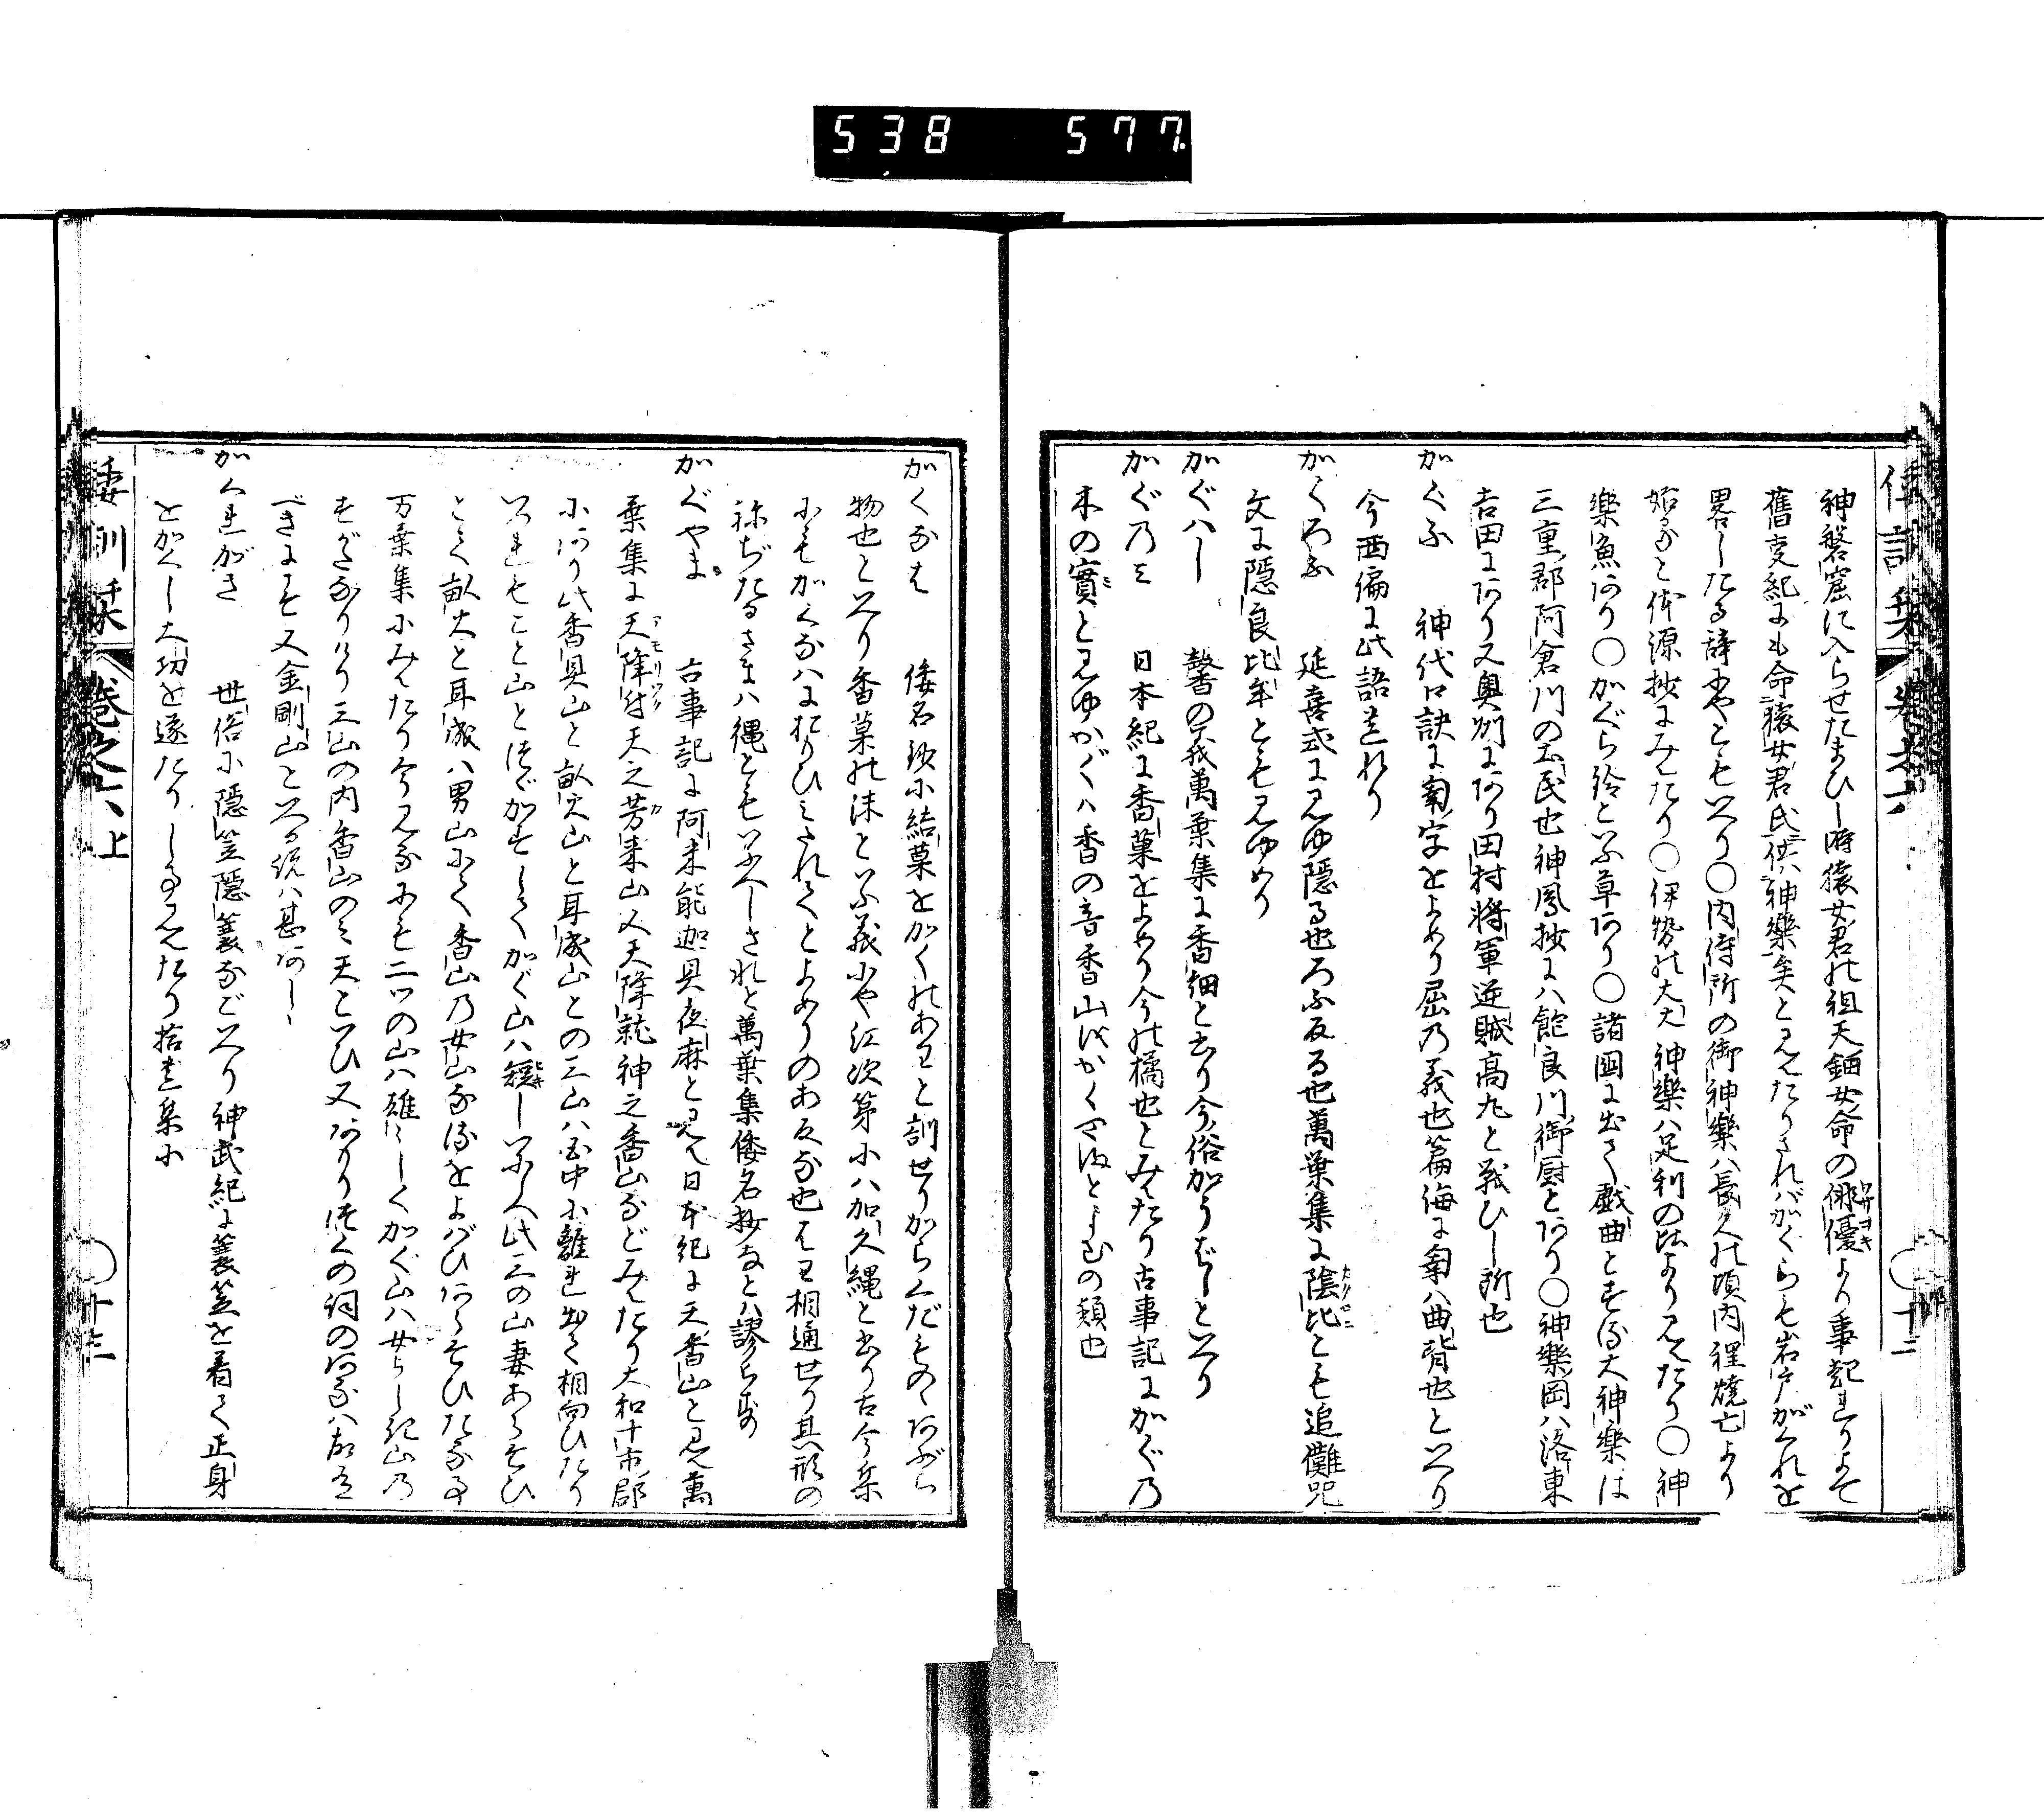 538 577
神磐窟に入らせたまひし時猿女君の祖天鈿女命の俳優より事起れりよて
舊事紀にも命猿女君氏供神樂矣と見えたりされバがくらも岩戸がくれを
畧したる辞にやともいへり〇内侍所の御神樂ハ長久の頃内裡燒亡より
始ると体源抄にみえたり〇伊勢の大大神樂ハ足利の比より見えたり〇神
樂魚あり〇かぐら鈴といふ草あり〇諸國に出て戯曲とする大神樂は
三重郡阿倉川の土民也神鳳抄にハ館良川御厨とあり〇神樂岡ハ洛東
吉田にあり又奥州にあり田村將軍逆賊高丸と戰ひし所也
かぐふ 神代口訣に匊字をよめり屈の義也篇海に匊ハ曲背也といへり
今西偏に此語遺れり
かくろふ 延喜式に見ゆ隱る也ろふ反る也萬葉集に陰比とも追儺咒
文に隱良比年とも見ゆめり
かぐハし 馨の義萬葉集に香細と書り今俗かうばしといへり
かぐのみ 日本紀に香菓をよめり今の橘也とみえたり古事記にかぐの
木の實と見ゆかぐハ香の音香山をかくやまとよむの類也
かくなわ 倭名鈔に結菓をかくのあわと訓せりからくだもの丶あぶら
物也といへり香菓の沫といふ義にや江次第にハ加久縄と書り古今集
にもかくなハにおもひみだれてとよめりのあ反な也わとハ相通せり其形の
ねぢたるさまハ縄ともいふべしされと萬葉集倭名抄などハ謬らず
かぐやま 古事記に阿米能迦具夜麻と見え日本紀に天香山と見萬
葉集に天降付天之芳来山又天降就神之香山などみえたり大和十市郡
にあり此香具山と畝火山と耳成山との三山ハ國中に離れ出て相向ひたり
いづれもこと山とつゞかずしてかぐ山ハ短しいにしへ此三の山妻あらそひ
とて畝火と耳成ハ男山にて香山の女山なるをよばひあらそひたる事
万葉集にみえたり今見るにも二ツの山ハ雄々しくかぐ山ハ女らしき山の
すがたなりけり三山の内香山のミ天といひ又あもりつくの詞のあるハ故有
べきにこそ又金剛山といふ説ハ甚あし
かくれがさ 世俗に隱笠隱簑などいへり神武紀に簑笠を着て正身
をかくし大功を遂たりしより見えたり拾遺集に
倭訓栞 巻之六上 〇十三